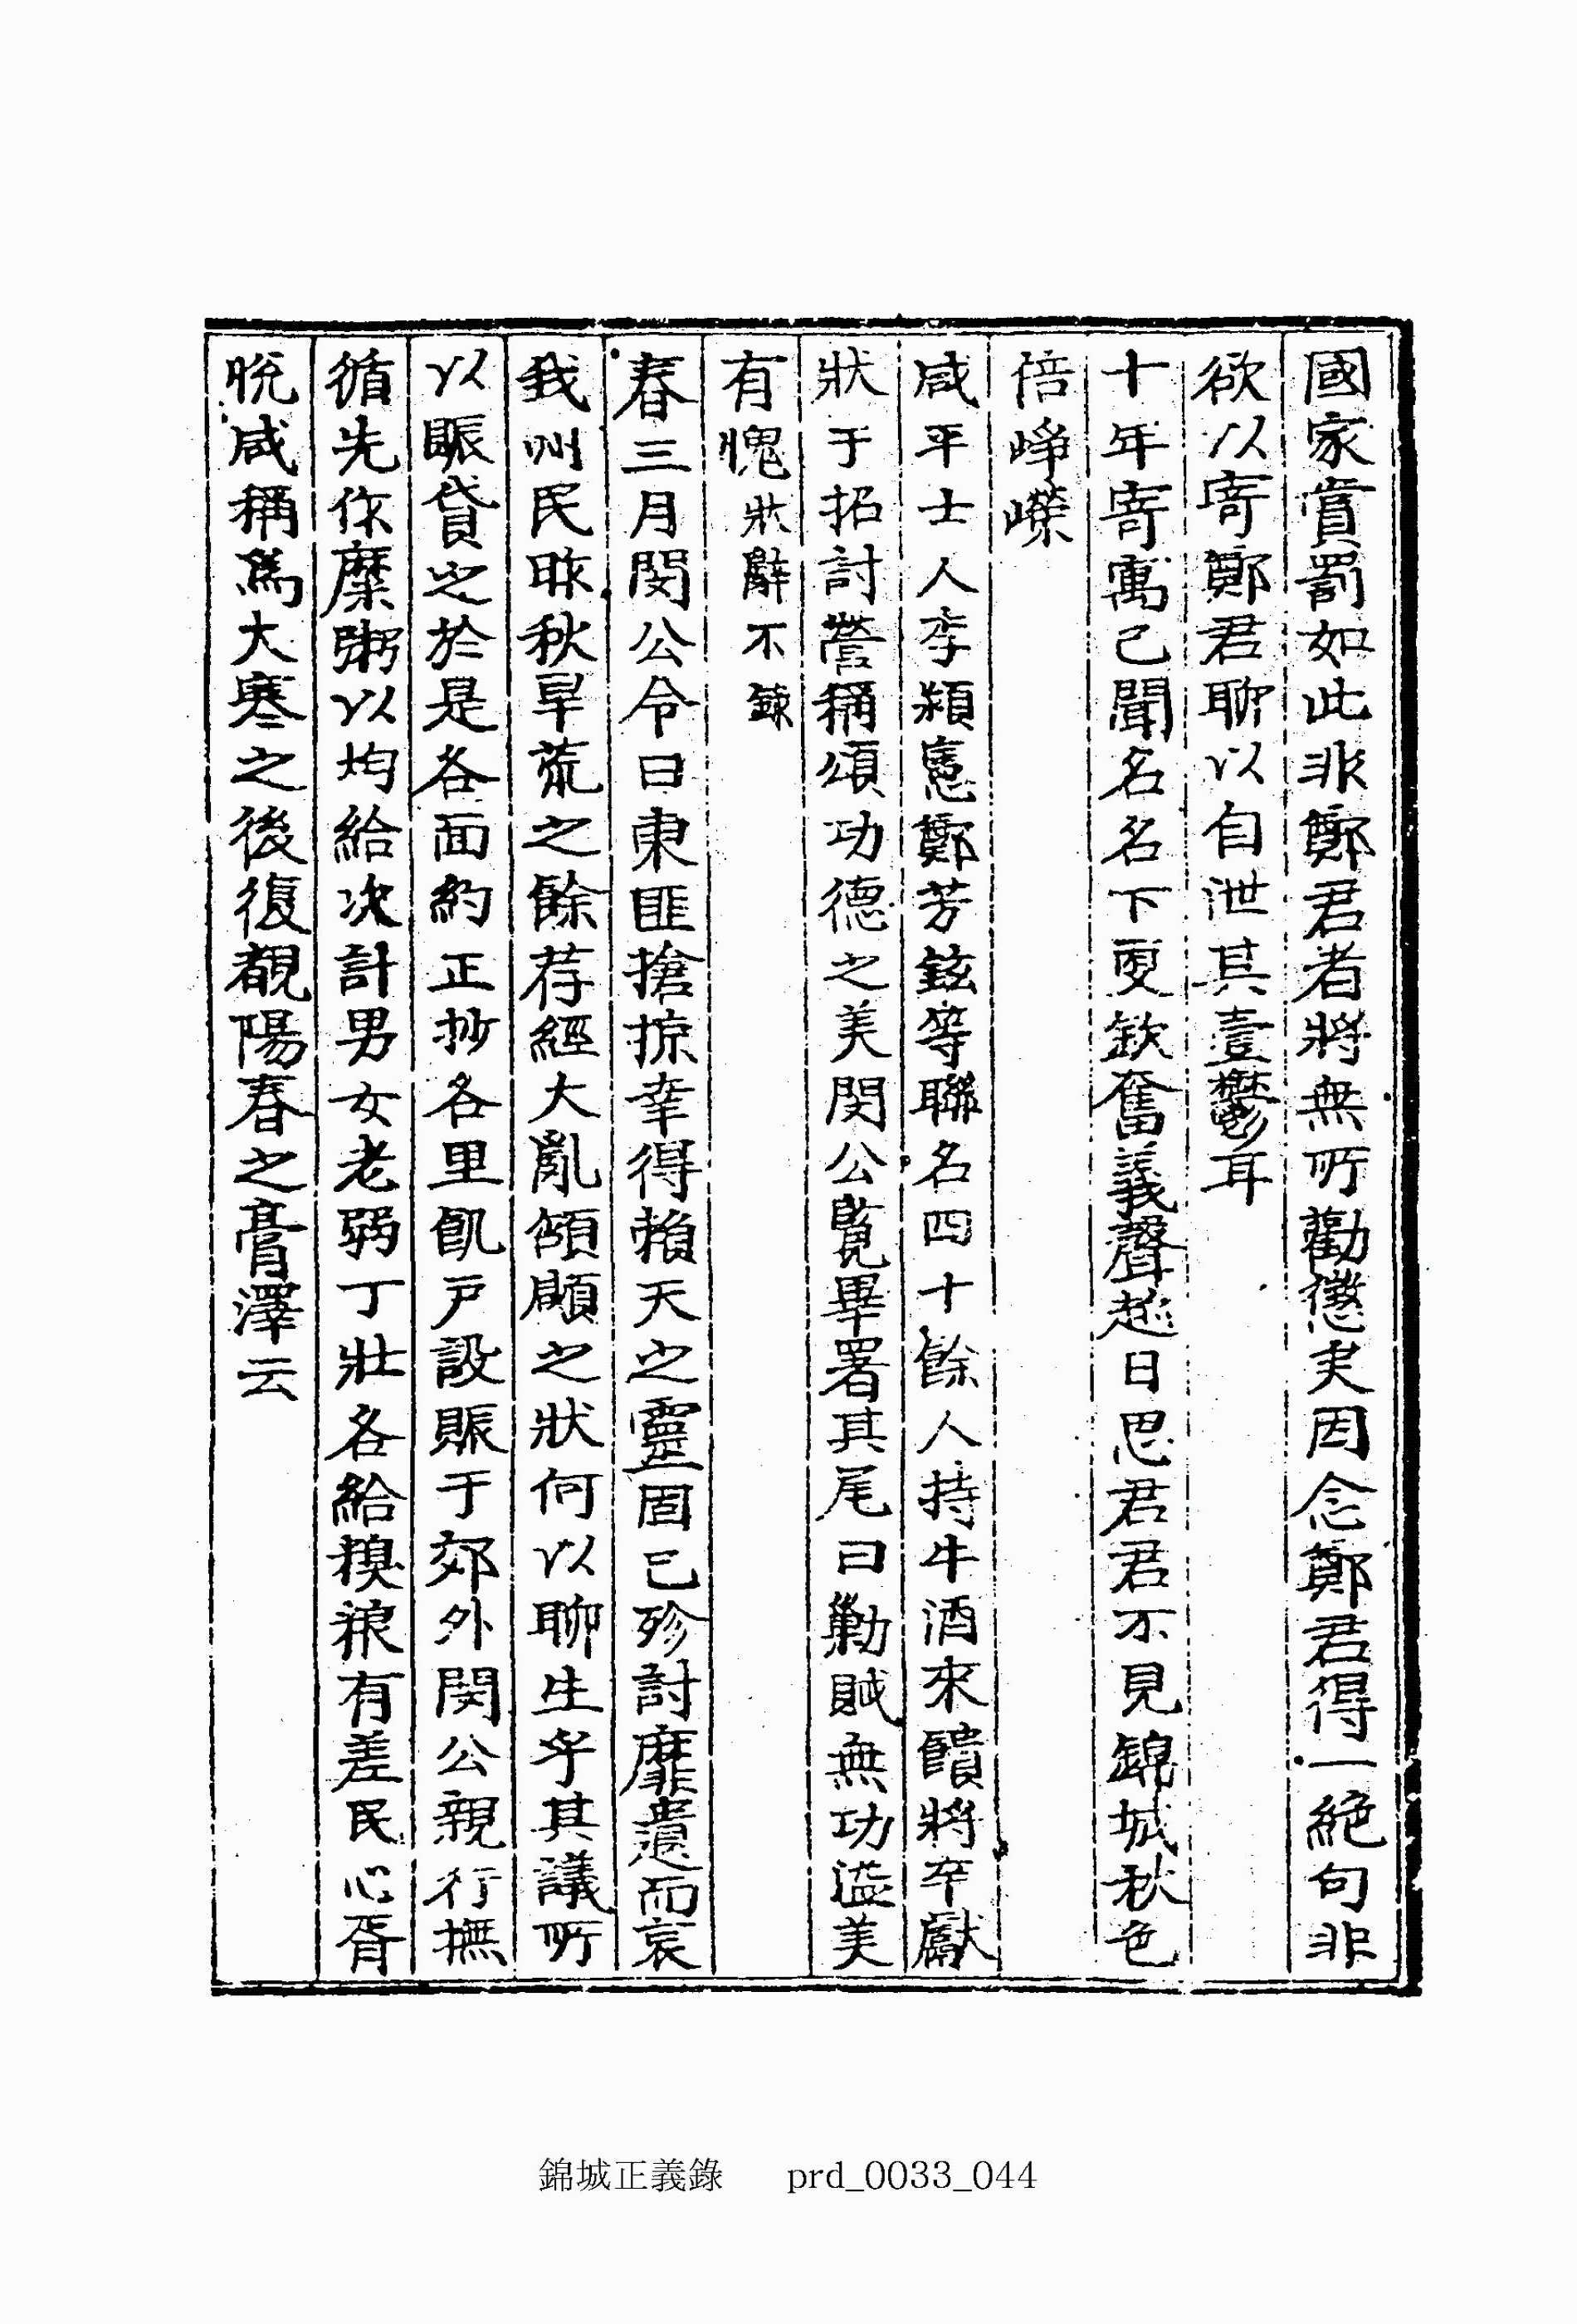 國家賞罰如此非鄭君者將無所勸懲矣因念鄭君得一絶句非
欲以寄鄭君聊以自泄其壹鬱耳
十年寄寓已聞名名下更欽奮義聲越日思君君不見錦城秋色
倍崢嶸
咸平士人李頴憲鄭芳鉉等聯名四十餘人持牛酒來饋將卒獻
狀于招討營稱頌功德之美閔公覧畢署其尾曰勦賊無功溢美
有愧狀辭不錄
春三月閔公令曰東匪搶掠幸得賴天之靈固已殄討靡遺而哀
我州民昨秋旱荒之餘荐經大亂傾頋之狀何以聊生乎其議所
以賑貸之於是各面約正抄各里飢戶設賑于郊外閔公親行撫
循先作糜粥以均給次計男女老弱丁壯各給糗粮有差民心胥
悅咸稱爲大寒之後復覩陽春之膏澤云
錦城正義錄 prd_0033_044